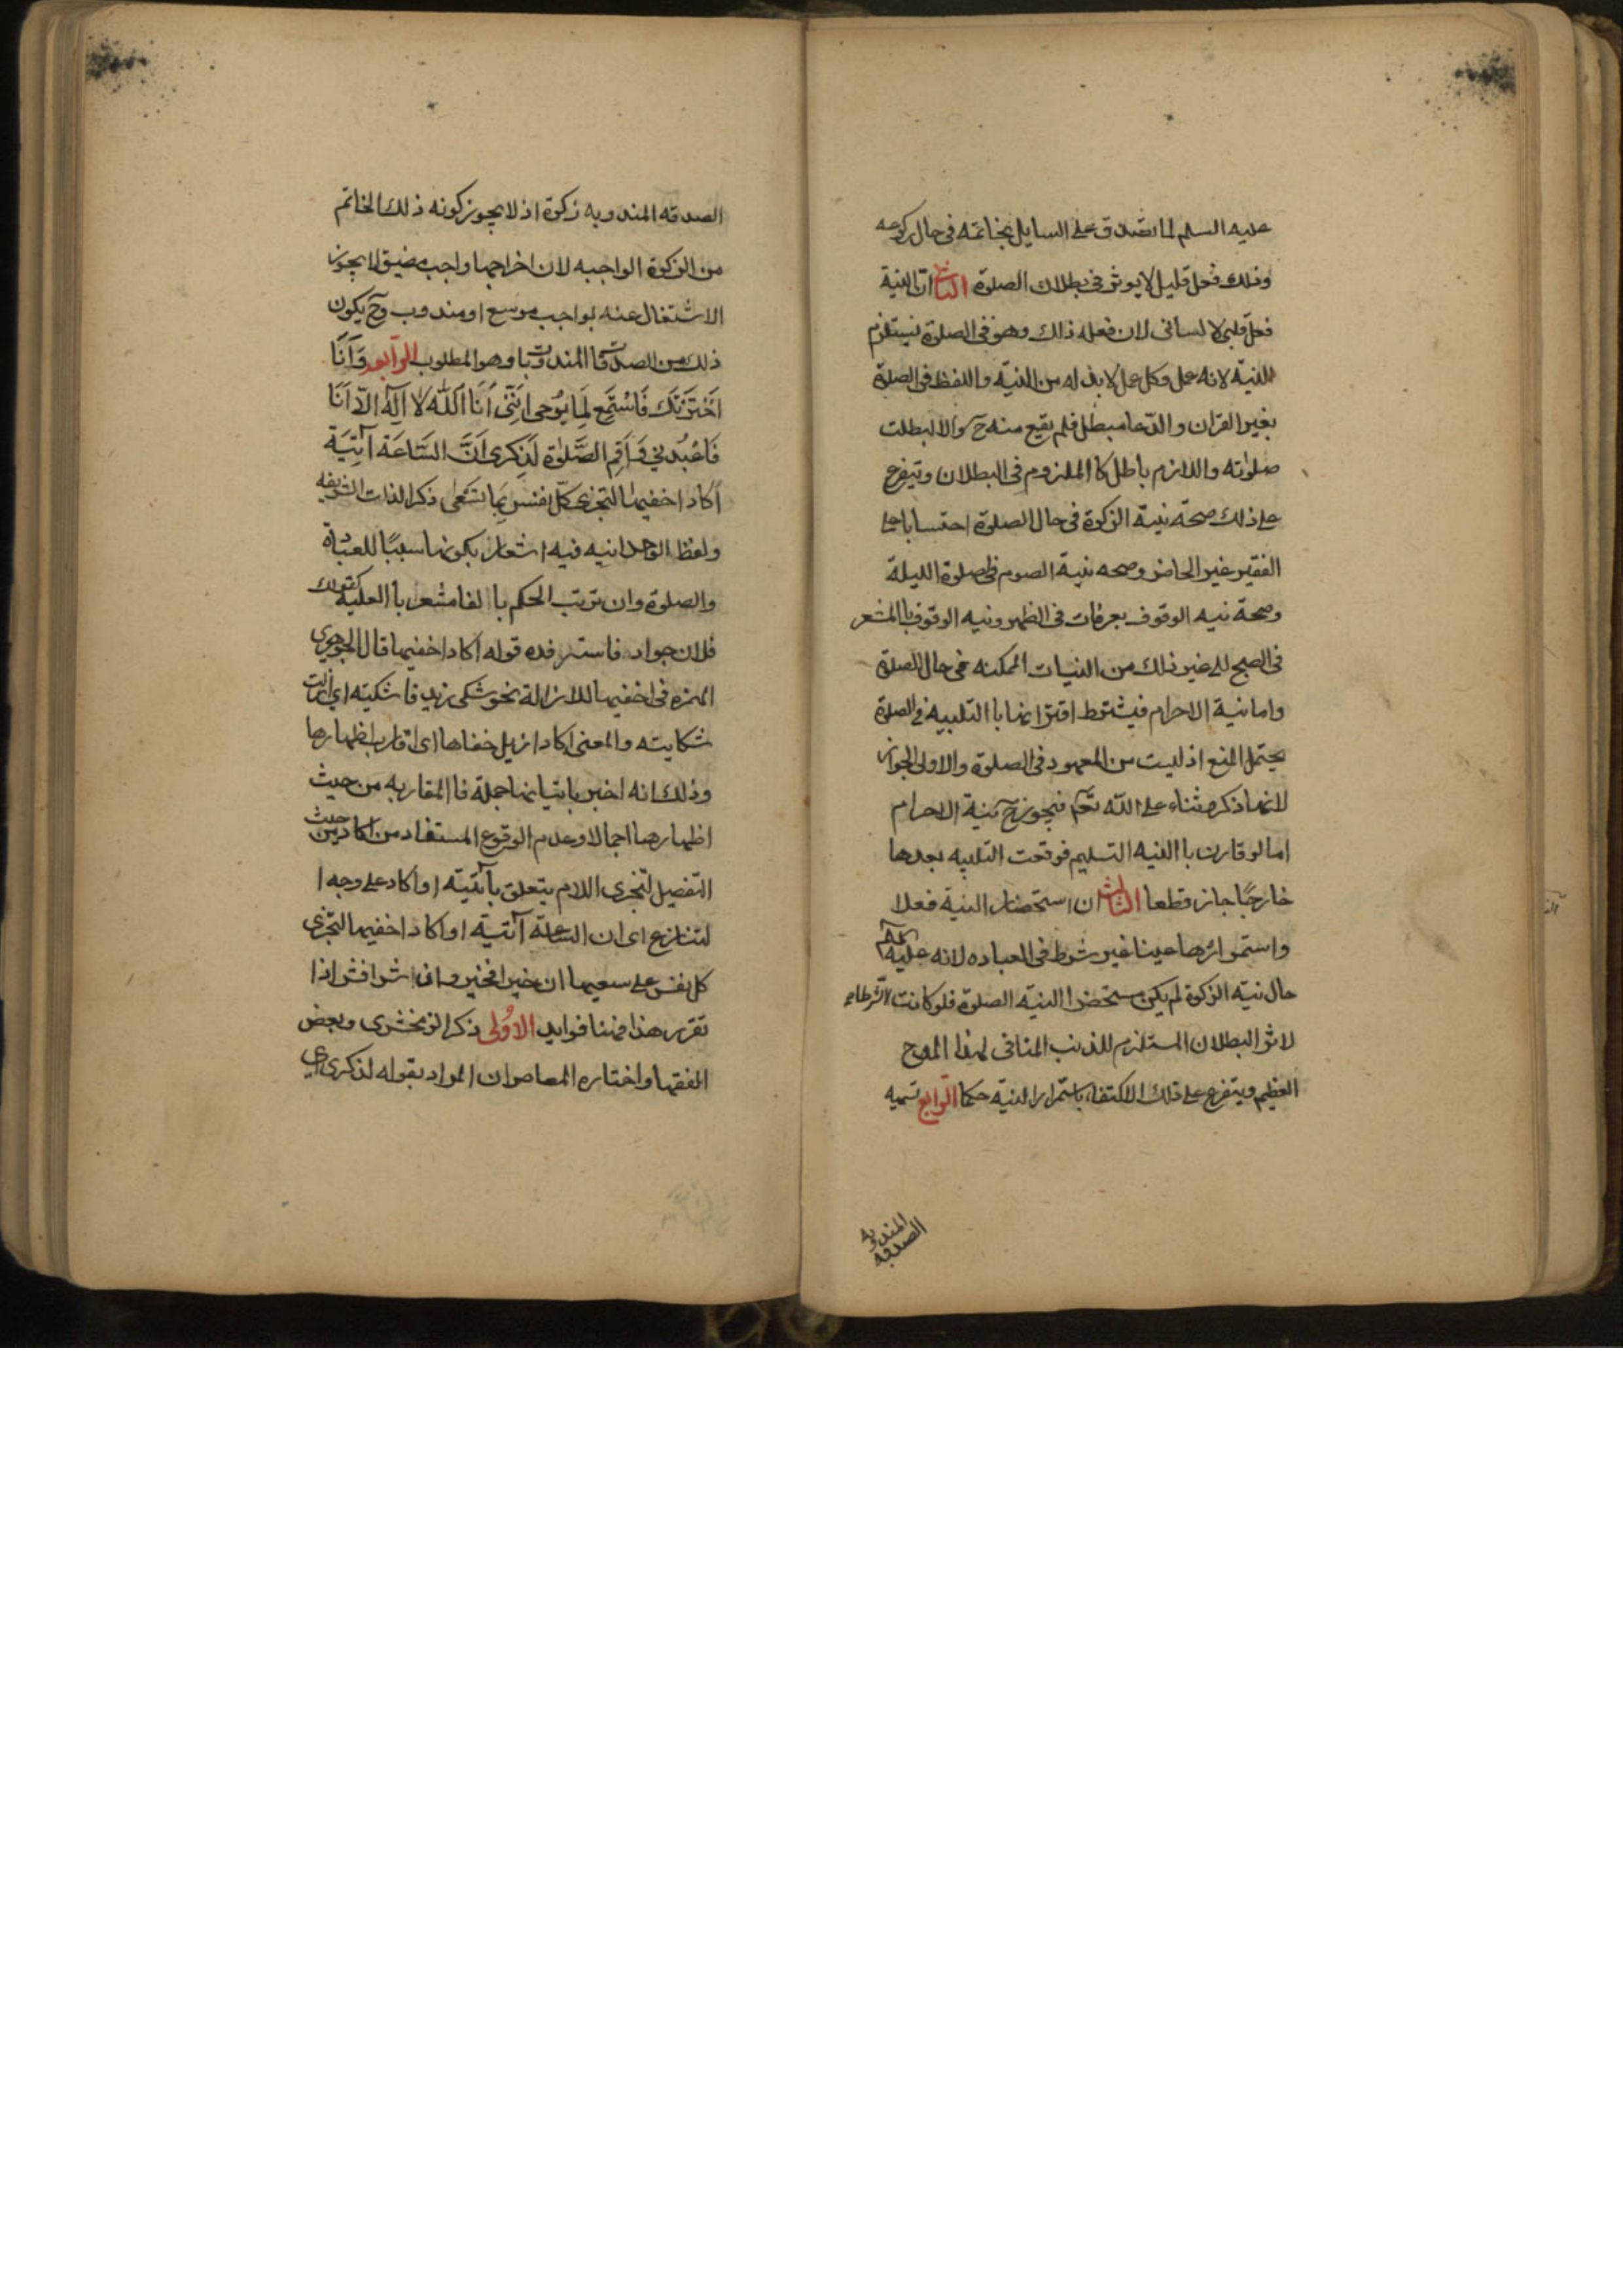 عليه السلم لما تصدق على السايل بخاتمه فى حال ركوعه
وذلك فعل قليل لا يوثر فى بطلان الصلوة الثانى ان النية
فعل قلبى لا لسانى لان فعله ذلك وهو فى الصلوة يستلزم
النية لانه عمل وكل عمل لابد له من النية واللفظ فى الصلوة
بغير القران والدعا مبطل فلم يقع منه ح والا لبطلت
صلوته واللازم باطل كا الملزوم فى البطلان ويتفرع
على ذلك صحة نية الزكوة فى حال الصلوة احتسابا على
الفقير غير الحاضر وصحه نية الصوم فى صلوة الليلة
وصحة نيه الوقوف بعرفات فى الظهر ونيه الوقوف با المشعر
فى الصبح الى غير ذلك من النيات الممكنه فى حال الصلوة
واما نية الاحرام فيشترط اقترانها با التلبيه فى الصلوة
يحتمل المنع اذ ليست من المعهود فى الصلوة والاولى الجواز
لانها ذكر وثناء على الله تعم فيجوز ح نية الاحرام
اما لو قارن با النيه التسليم فوقعت التلبيه بعدها
خارجًا جاز قطعا الثالث ان استحضار النية فعلا
واستمرارها عينا غير شرط فى العباده لانه عليه السلم
حال نية الزكوة لم يكن مستحضرا لنيه الصلوة فلو كانت شرطا
لاثر البطلان المستلزم للذنب المنافى لهذا المدح
العظيم ويتفرع على ذلك الاكتفاء باستمرار النية حكما الرابع تسميه
المندوبه
الصدقه
الصدقه المندوبه زكوة اذ لا يجوز كونه ذلك الخاتم
من الزكوة الواجبه لان اخراجها واجب مضيق لا يجوز
الاشتغال عنه بواجب موسع او مندوب وح يكون
ذلك من الصدقات المندوبات وهو المطلوب الرابعه وَاَنَا
اَخْتَرْتُكَ فَاسْتَمِع لِمَا يُوحى اِنَّنى اَنَا اللّٰه لا اِلٰهَ اِلّا اَنَا
فَاعْبُدْنى وَاَقِمِ الصَّلوٰةَ لِذِكرى اِنَّ السَّاعَةَ آتِيَةٌ
اَكاد اخفيها لتجزى كلّ نفس بِما تَسْعٰى ذكر الذات الشريفه
ولفظ الوحدانيه فيه اشعار بكونها سببًا للعبادة
والصلوة وان ترتب الحكم با الفا مشعر با العلية كقولك
فلان جواد فاسترفده قوله اكاد اخفيها قال الجوهري
الهمزه فى اخفيها للازالة نحو شكى زيد فاشكيته اى ازلت
شكايته والمعنى اكاد ازيل خفاها اى اقارب اظهارها
وذلك انه اخبر باتيانها جملة فا المقاربه من حيث
اظهارها اجمالا وعدم الوقوع المستفاد من اكاد من حيث
التفصيل لتجزى اللام يتعلق بآتية او اكاد على وجه ا
لتنازع اى ان الساعة آتية او اكاد اخفيها لتجزى
كل نفس على سعيها ان خيرا فخير وان شرا فشر اذا
تقرر هذا فهنا فوايد الاُولى ذكر الزمخشرى وبعض
الفقها واختاره المعاصر ان المراد بقوله لذكرى اى